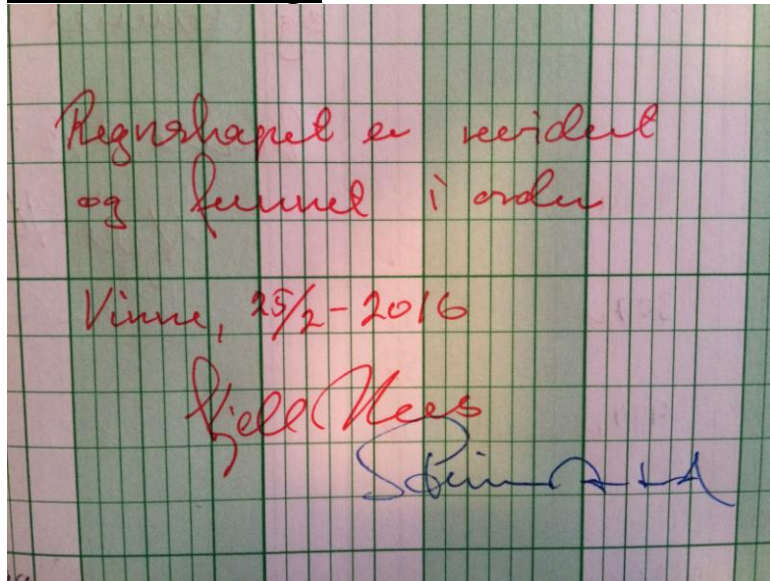 Regnskapet er revidert
og funnet i orden
Vinne, 25/2-2016
Kjell Nees